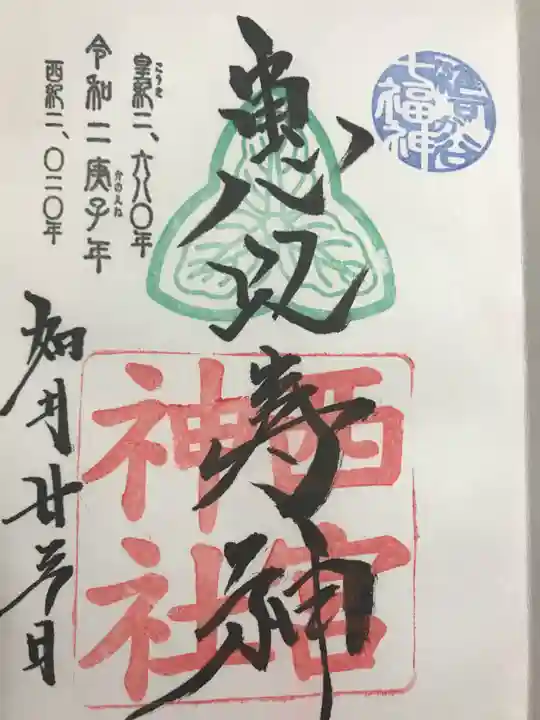 七福神
恵比寿神
西宮
神社
皇紀二、六八〇年
こうき
令和二庚子年
かのえね
西紀二、〇二〇年
如月廿三日